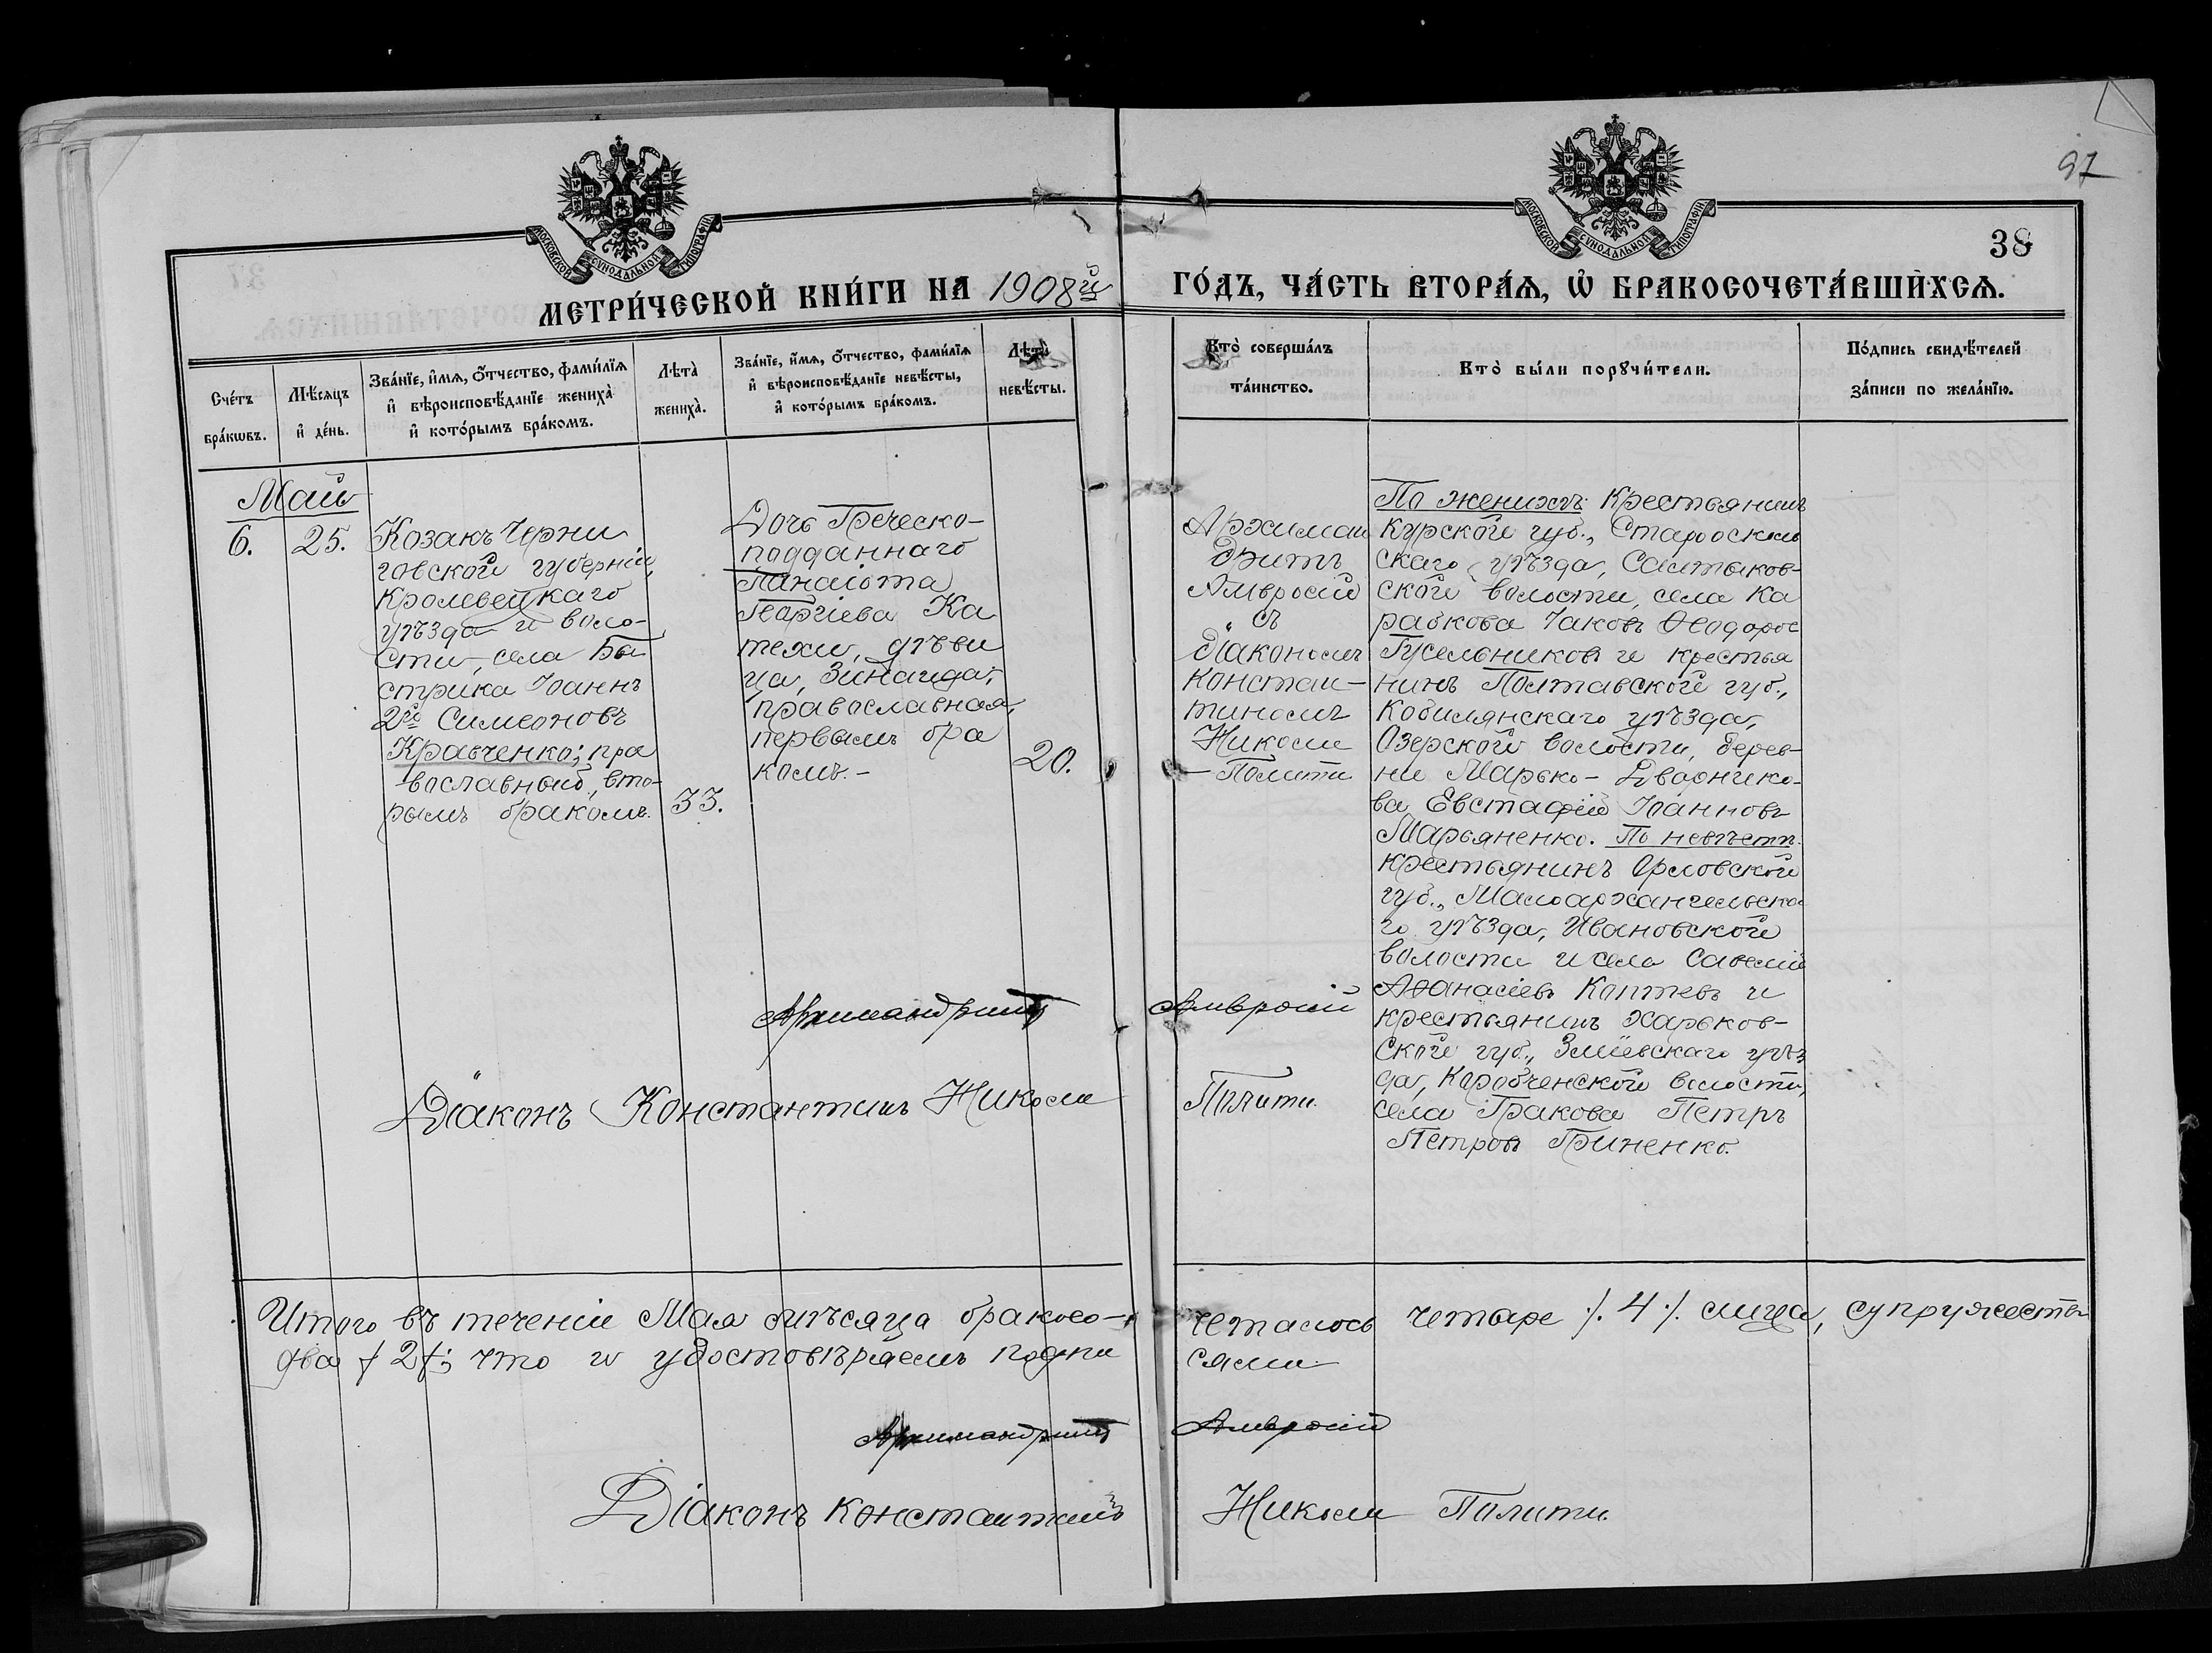 97
38
МОСКОВСКОЙ СѴНОДАЛЬНОЙ ТИПОГРАФІИ
МОСКОВСКОЙ СѴНОДАЛЬНОЙ ТИПОГРАФІИ
МЕТРИ́ЧЕСКОЙ КНИ́ГИ НА 1908й ГО́ДЪ, ЧА́СТЬ ВТОРА́Ѧ, Ѡ҆ БРАКОСОЧЕТА́ВШИХСѦ.
Сче́тъ
бра́кѡвъ.
Мѣ́сѧцъ
и҆ де́нь.
Зва́нїе, и҆́мѧ, ѻ҆́тчество, фами́лїѧ
и҆ вѣроисповѣ́данїе жениха̀
и҆ кото́рымъ бра́комъ.
Лѣта̀
жениха̀.
Зва́нїе, и҆́мѧ, ѻ҆́тчество, фами́лїѧ
и҆ вѣроисповѣ́данїе невѣ́сты,
и҆ кото́рымъ бра́комъ.
Лѣта̀
невѣ́сты.
Кто̀ соверша́лъ
та́инство.
Кто̀ бы́ли порꙋчи́тели.
По́дпись свидѣ́телей
за́писи по жела́нїю.
Май
6.
25.
Козакъ Черни
говской губерніи,
Кролевецкаго
уѣзда и воло-
сти, села Бы
стрика Іоаннъ
2й Симеоновъ
Кравченко; пра
вославный, вто-
рымъ бракомъ.
33.
Дочь Греческо-
подданнаго
Панаіота
Георгіева Ка
техи, дѣви
ца, Зинаида,
православная,
первымъ бра
комъ.-
20.
Архиман
дритъ
Амвросій
съ
діакономъ
Констан-
тиномъ
Николи
- Полити
По женихѣ: крестьянинъ
Курской губ., Старооскол
скаго уѣзда, Салтыков-
ской волости, села Ка
равкова Іаковъ Ѳеодоров
Гусельниковъ и крестья
нинъ Полтавской губ.,
Кобилянскаго уѣзда,
Озерской волости, дерев-
ни Марько-Дворнико-
ва Евстафій Іоанновъ
Марьяненко. По невѣстѣ:
крестьянинъ Орловской
губ., Малоархангельска
го уѣзда, Ивановской
волости и села Савелій
Аѳанасіевъ Коптевъ и
крестьянинъ Харьков-
ской губ., Зміевскаго уѣз
да, Коробченской волости,
села Гракова Петръ
Петровъ Гриненко.
Архимандритъ Амвросій
Діаконъ Константинъ Николи Полити.
Итого въ теченіи Мая мѣсяца бракосо-четалось четыре ./. 4 ./. лица, супружества
два ./. 2 ./.; что и удостовѣряемъ подписями
Архимандритъ Амвросій
Діаконъ Константинъ Николи Полити